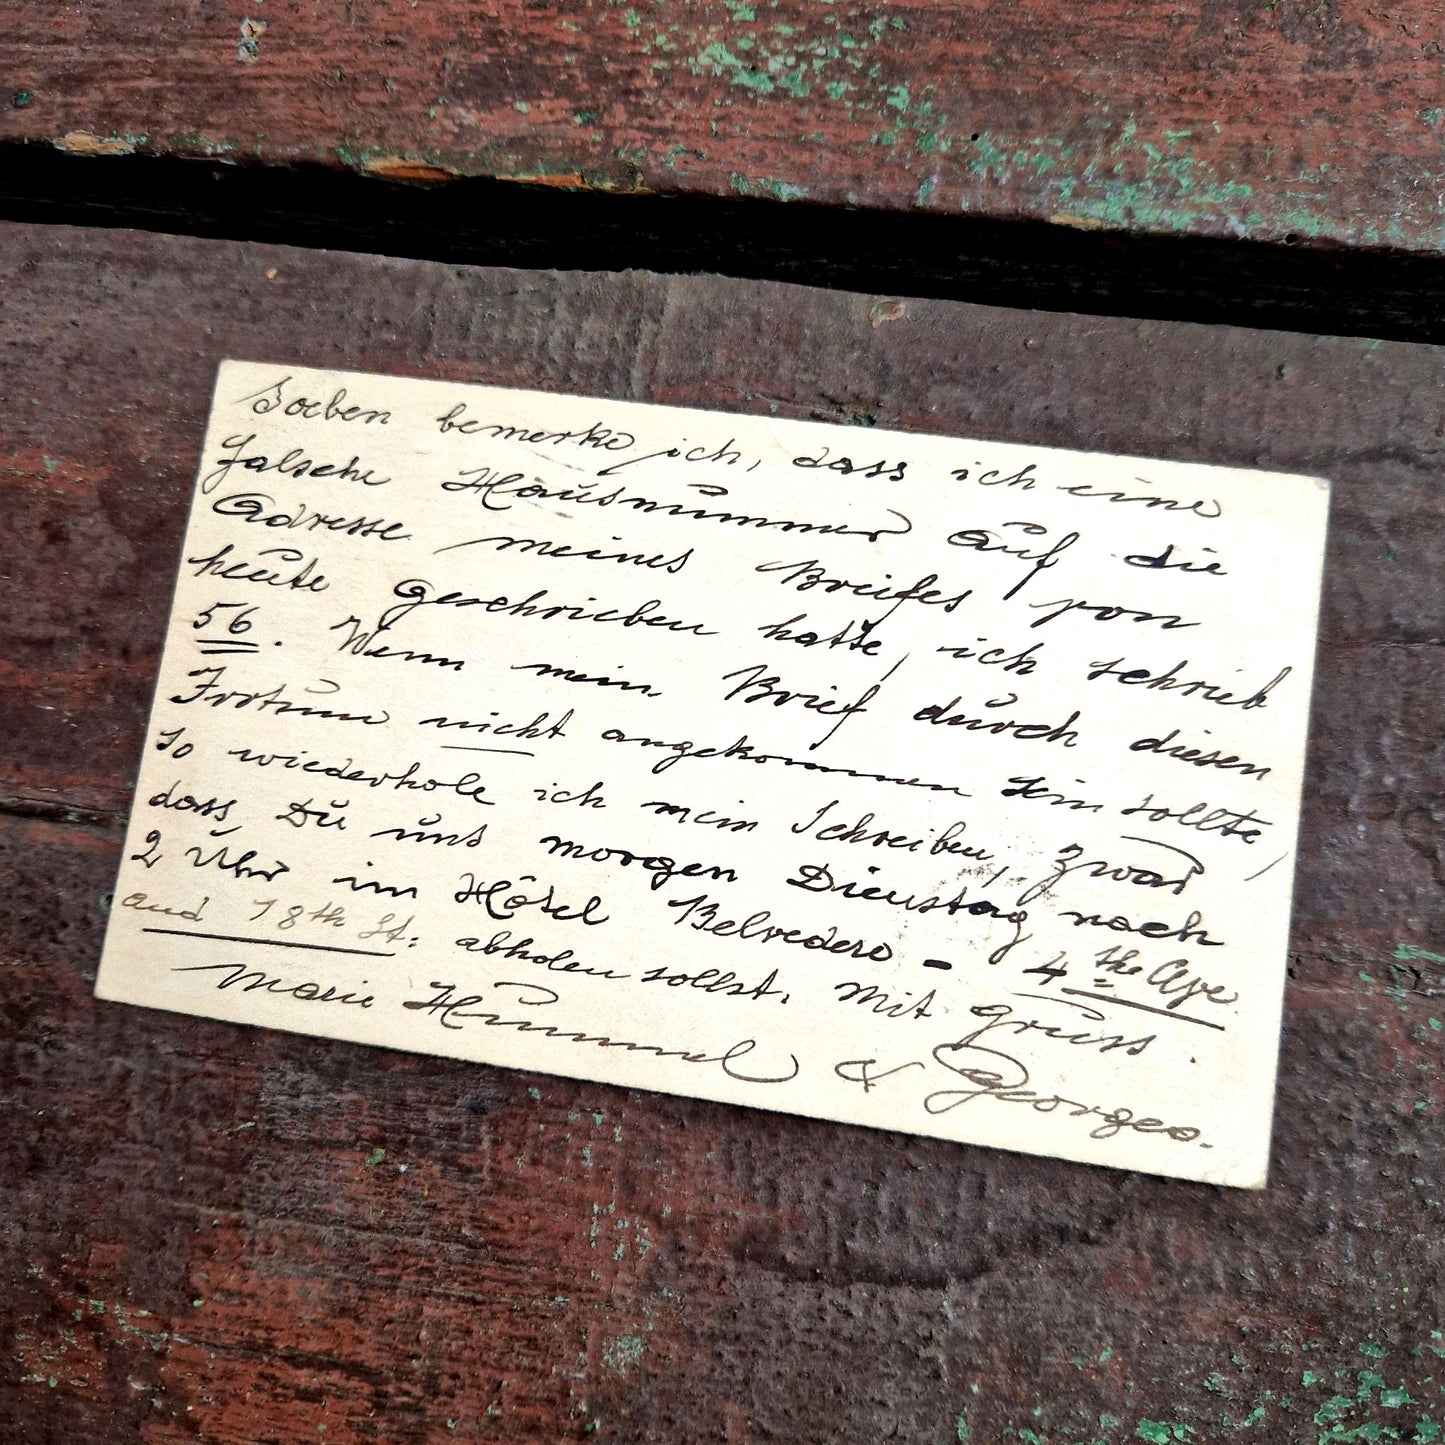 Soeben bemerke ich, dass ich eine
falsche Hausnummer auf die
Adresse meines Briefes von
heute geschrieben hatte, ich schrieb
56. Wenn mein Brief durch diesen
Irrtum nicht angekommen sein sollte,
so wiederhole ich mein Schreiben, zwar
dass Du uns morgen Dienstag nach
2 Uhr im Hôtel Belvedere - 4the Ave
and 18th St: abholen sollst. Mit Gruss.
Marie Hummel & Georges.